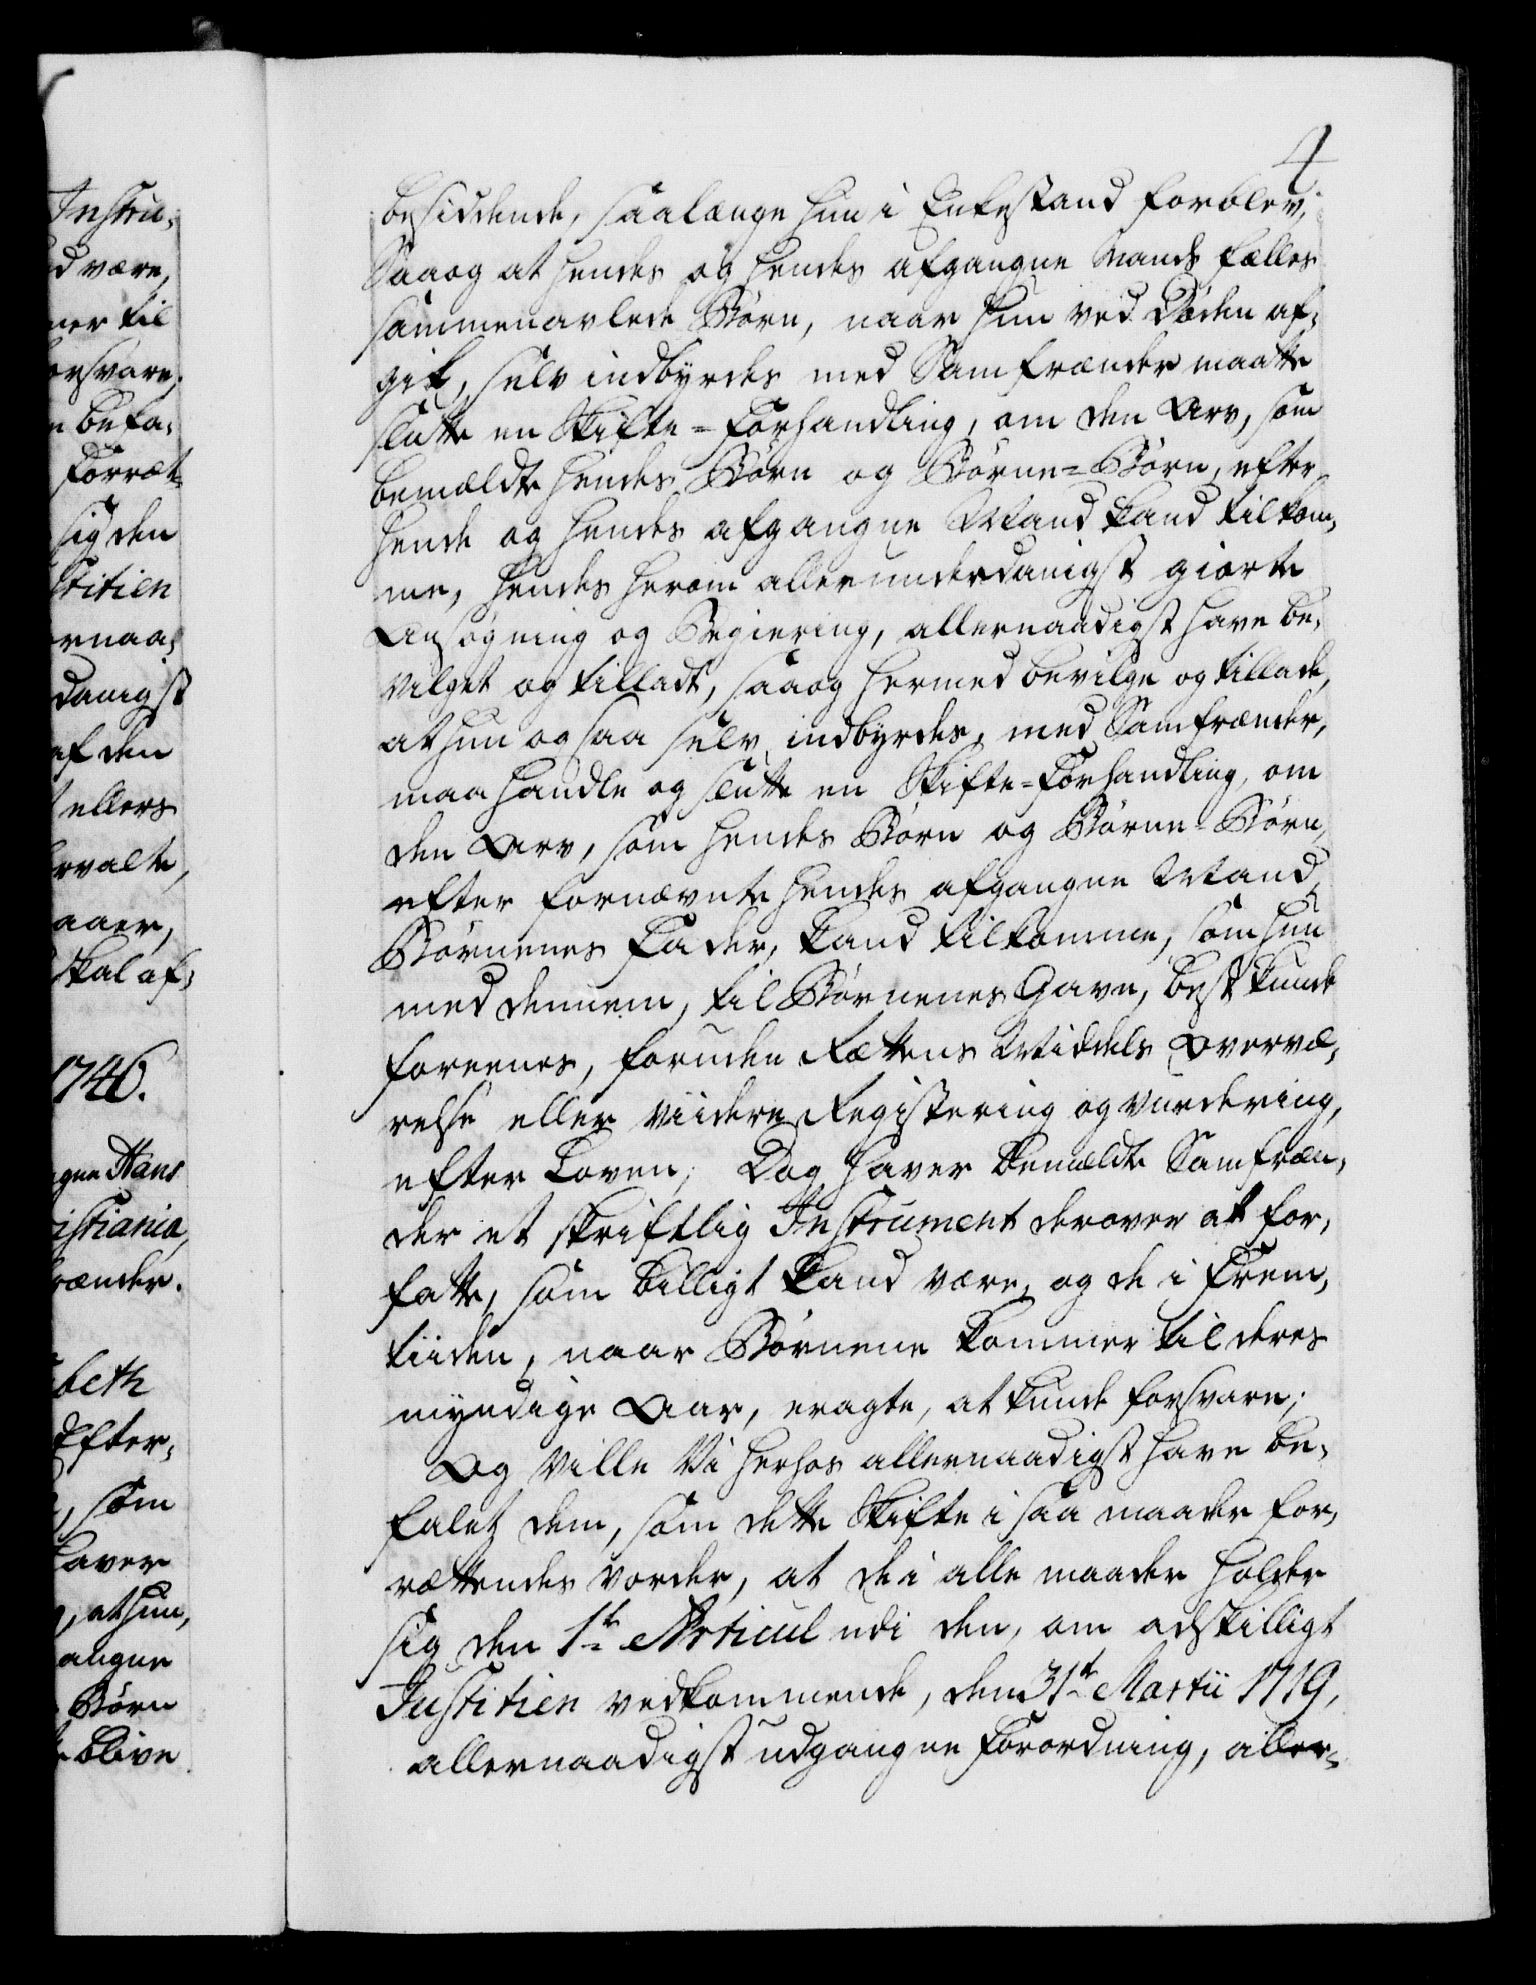 4
besiddende, saalænge hun i Enkestand forblev,
Saa og at hendes og hendes afgangne Mands fælles
sammenavlede Børn, naar hun ved Døden af-
gik, selv indbyrdes med Samfrænder maatte
slutte en Skifte=Forhandling, om den Arv, som
bemældte hendes Børn og Børne=Børn, efter
hende og hendes afgangne Mand kand tilkom-
me, hendes herom allerunderdanigst giorte
Ansøgning og Begiering, allernaadigst have be-
vilget og tilladt, saa og hermed bevilge og tillade,
at hun og saa selv indbyrdes, med Samfrænder,
maa handle og slutte en Skifte=Forhandling, om
den Arv, som hendes Børn og Børne=Børn,
efter fornævnte hendes afgangne Mand,
Børnenes Fader, kand tilkomme, som hun
med dennem, til Børnenes Gavn, best kunde
foreenes, foruden Rettens Middels Overvæ-
relse eller viidere Registering og Vurdering,
efter Loven; Dog haver bemældte Samfræn-
der et skriftlig Instrument derover at for-
fatte, som billigt kand være, og de i Frem-
tiiden, naar Børnene kommer til deres
myndige Aar, eragte, at kunde forsvare;
Og Ville Vi herhos allernaadigst have be-
falet dem, som dette Skifte i saa maader for-
rettendes vorder, at de i alle maader holder
sig den 1te Articul udi den, om adskilligt
Justitien vedkommende, den 31te Martii 1719,
allernaadigst udgangne Forordning, aller-
Instru-
d være,
ner til
orsvare,
n befa-
Forret-
sig den
stitien
ernaa-
danigst
af den
ellers
ervalte,
aaer,
skal af-
1746.
gne Hans
istiania,
rænder.
beth
Efter-
, som
haver
, at hun,
angne
Børn
blive